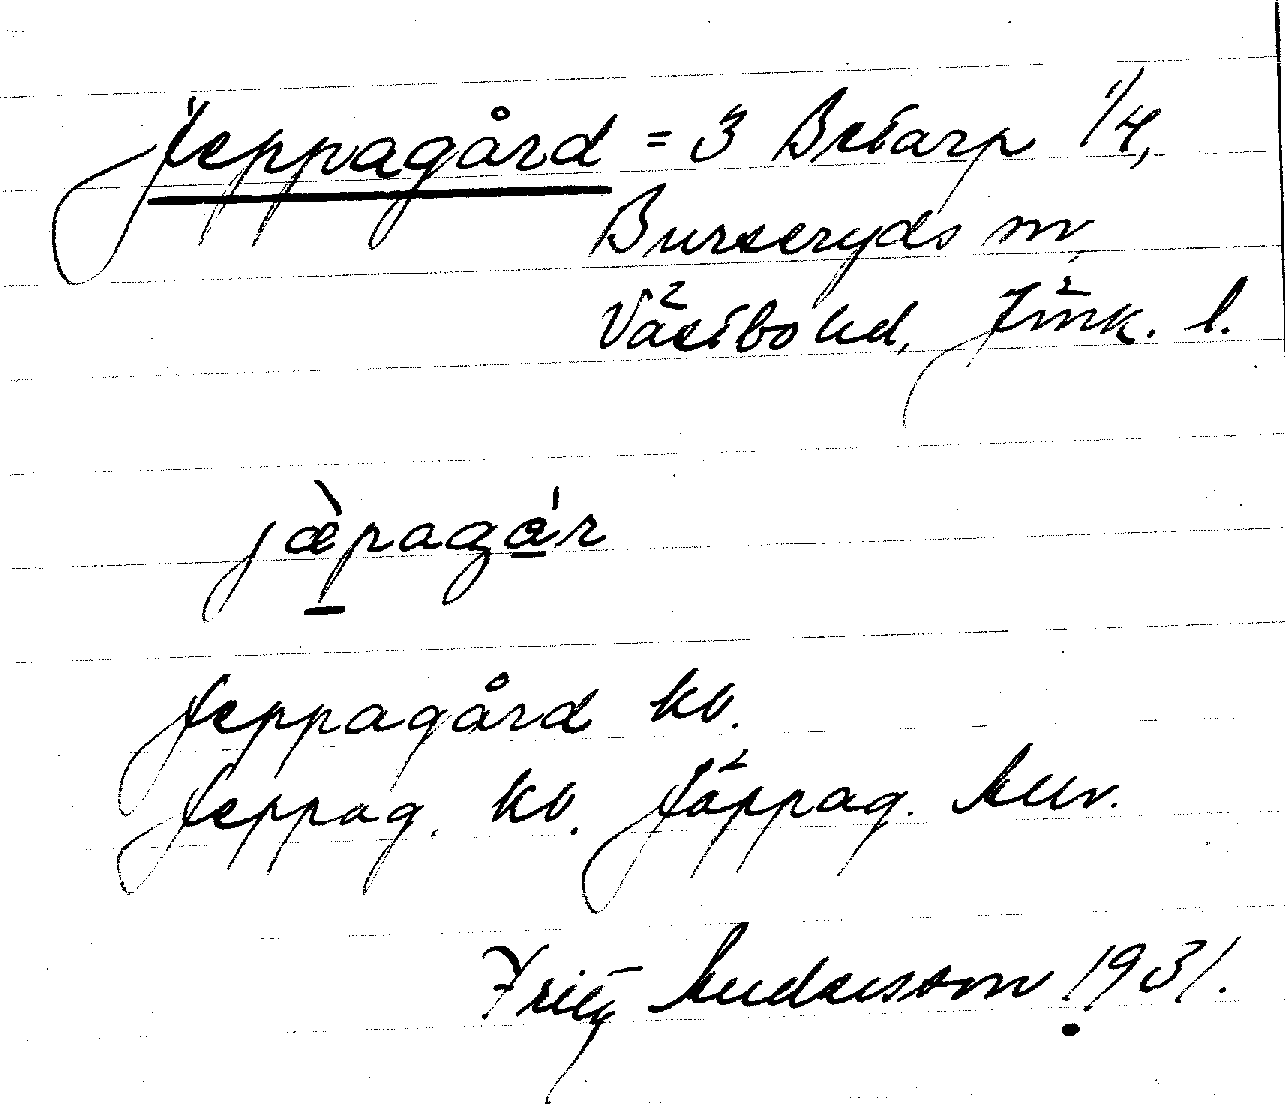 Jeppagård = 3 Betarp 1/4,
Burseryds sn,
Västbo hd, Jönk. l.
jæ̀pagár
Jeppagård kb.
Jeppag. kb. Jäppag. Auv.
Fritz Andersson 1931.